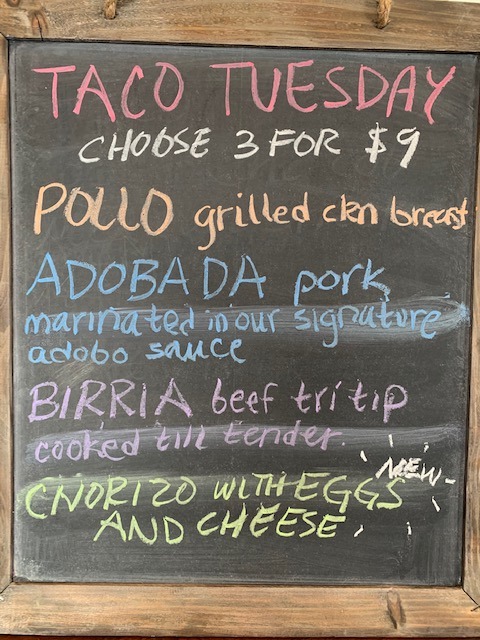 TACO TUESDAY
CHOOSE 3 FOR $9
POLLO grilled ckn breast
ADOBADA pork
marinated in our signature
adobo sauce
BIRRIA beef tri tip
cooked till tender.
NEW
CHORIZO WITH EGGS
AND CHEESE